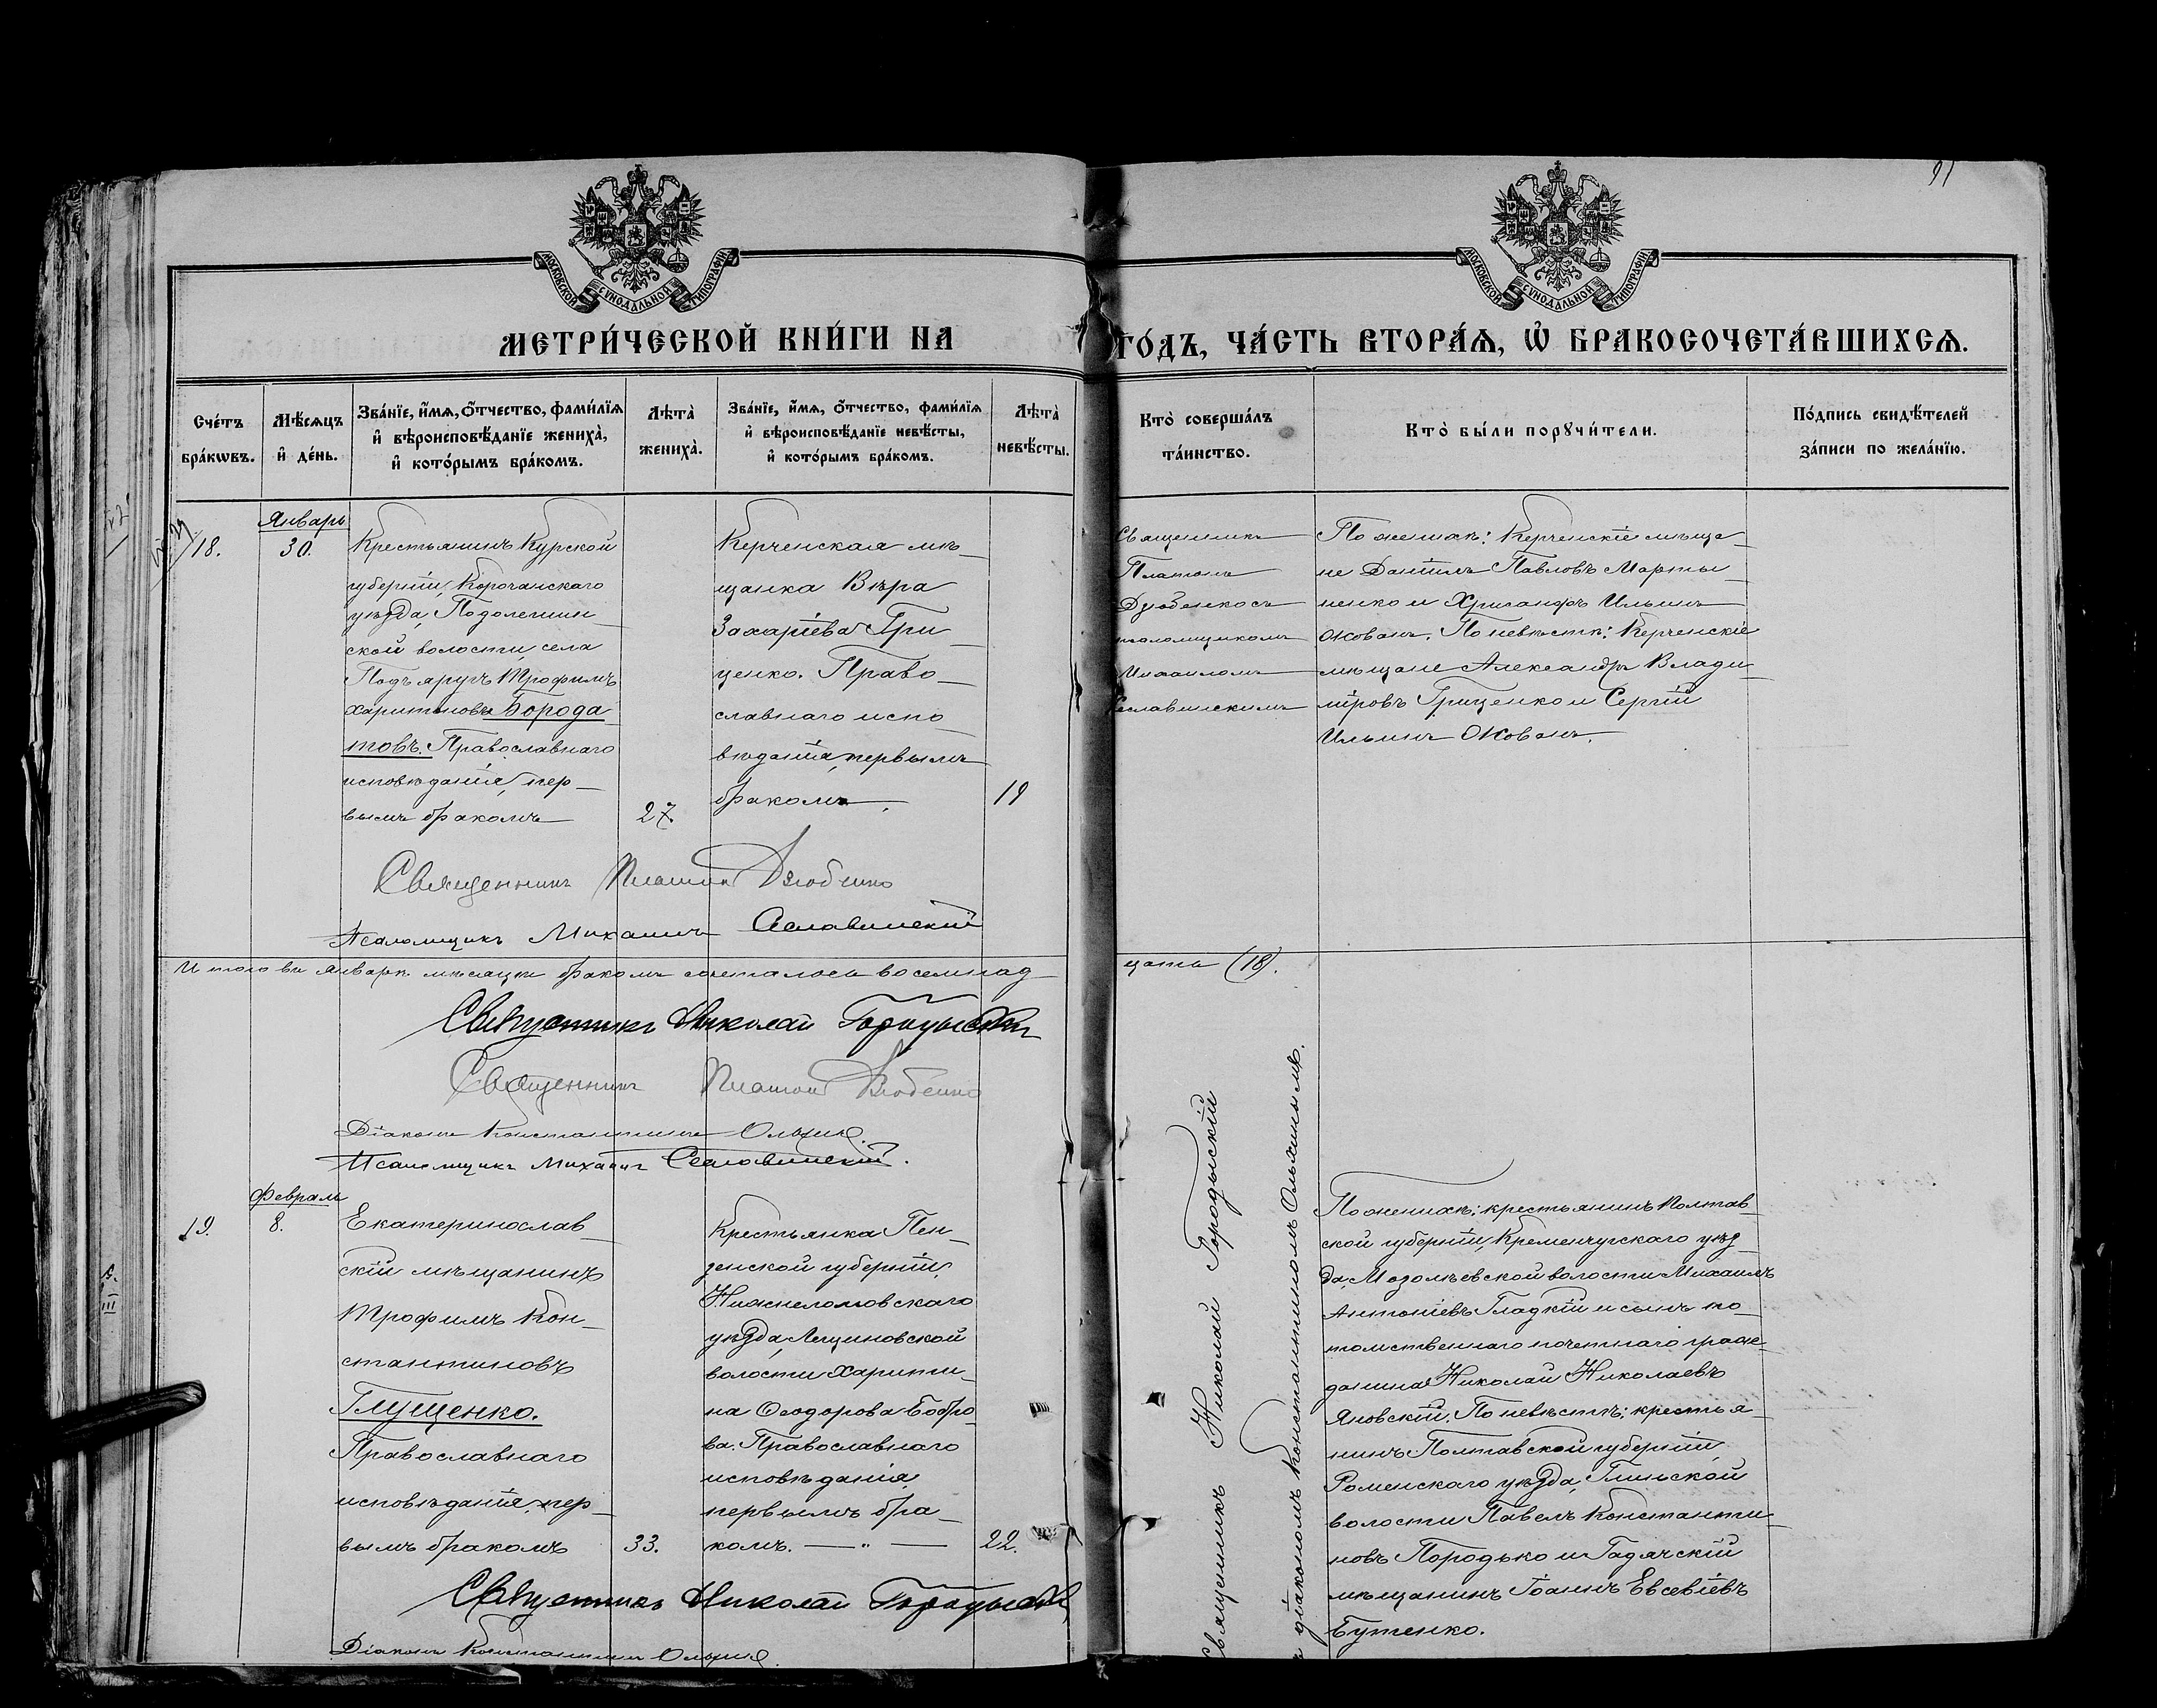 91
МОСКОВСКОЙ СѴНОДАЛЬНОЙ ТИПОГРАФІИ
МОСКОВСКОЙ СѴНОДАЛЬНОЙ ТИПОГРАФІИ
МЕТРИ́ЧЕСКОЙ КНИ́ГИ НА
ГО́ДЪ, ЧА́СТЬ ВТОРА́Я, Ѡ҆ БРАКОСОЧЕТА́ВШИХСЯ.
Сче́тъ
бра́кωвъ.
Мѣ́сяцъ
и҆ де́нь.
Зва́нїе, и҆́мя, о҆́тчество, фами́лїя
и҆ вѣроисповѣ́данїе жениха̀,
и҆ кото́рымъ бра́комъ.
Лѣта̀
жениха̀.
Зва́нїе, и҆́мя, о҆́тчество, фами́лїя
и҆ вѣроисповѣ́данїе невѣ́сты,
и҆ кото́рымъ бра́комъ.
Лѣта̀
невѣ́сты.
Кто̀ соверша́лъ
та́инство.
Кто̀ бы́ли порꙋчи́тели.
По́дпись свидѣ́телей
за́писи по жела́нїю.
18.
Январь
30.
Крестьянинъ Курской
губерніи, Корочанскаго
уѣзда, Подолешин_
ской волости, села
Подъяругъ Трофимъ
Харитоновъ Борода
товъ. Православнаго
исповѣданія, пер_
вымъ бракомъ
27
Керченская мѣ_
щанка Вѣра
Захаріева Гри_
ценко. Право_
славнаго испо_
вѣданія, первымъ
бракомъ.
19
Священникъ
Платонъ
Дзюбенко съ
псаломщикомъ
Михаиломъ
Сеславинскимъ
По женихѣ: Керченскіе мѣща_
не Даніилъ Павловъ Марты_
ненко и Хрисанфъ Ильинъ
Жованъ. По невѣстѣ: Керченскіе
мѣщане Александръ Влади_
міровъ Гриценко и Сергій
Ильинъ Жованъ.
Священникъ Платонъ Дзюбенко
Псаломщикъ Михаилъ Сеславинскій
Итого въ январѣ мѣсяцѣ бракомъ сочеталось восемнад_
цать (18).
Священникъ Николай Городыскій
Священникъ Платонъ Дзюбенко
Діаконъ Константинъ
Псаломщикъ Михаилъ Сеславинскій.
19.
Февраль
8.
Екатеринослав_
скій мѣщанинъ
Трофимъ Кон_
стантиновъ
Глущенко.
Православнаго
исповѣданія, пер_
вымъ бракомъ
33.
Крестьянка Пен_
зенской губерніи,
Нижнеломовскаго
уѣзда, Лещиновской
волости Харити_
на Ѳеодорова Бобро_
ва. Православнаго
исповѣданія,
первымъ бра_
комъ. — " —
22.
Священникъ Николай Городыскій
діакономъ Константиномъ
По женихѣ: крестьянинъ Полтав_
ской губерніи, Кременчугскаго уѣз_
да, Мозолѣевской волости Михаилъ
Антоніевъ Гладкій и сынъ по_
томственнаго почетнаго граж_
данина Николай Николаевъ
Яновскій. По невѣстѣ: крестья_
нинъ Полтавской губерніи,
Роменскаго уѣзда, Глинской
волости Павелъ Константи_
новъ Породько и Гадячскій
мѣщанинъ Іоаннъ Евсевіевъ
Бутенко.
Священникъ Николай Городыскій
Діаконъ Константинъ